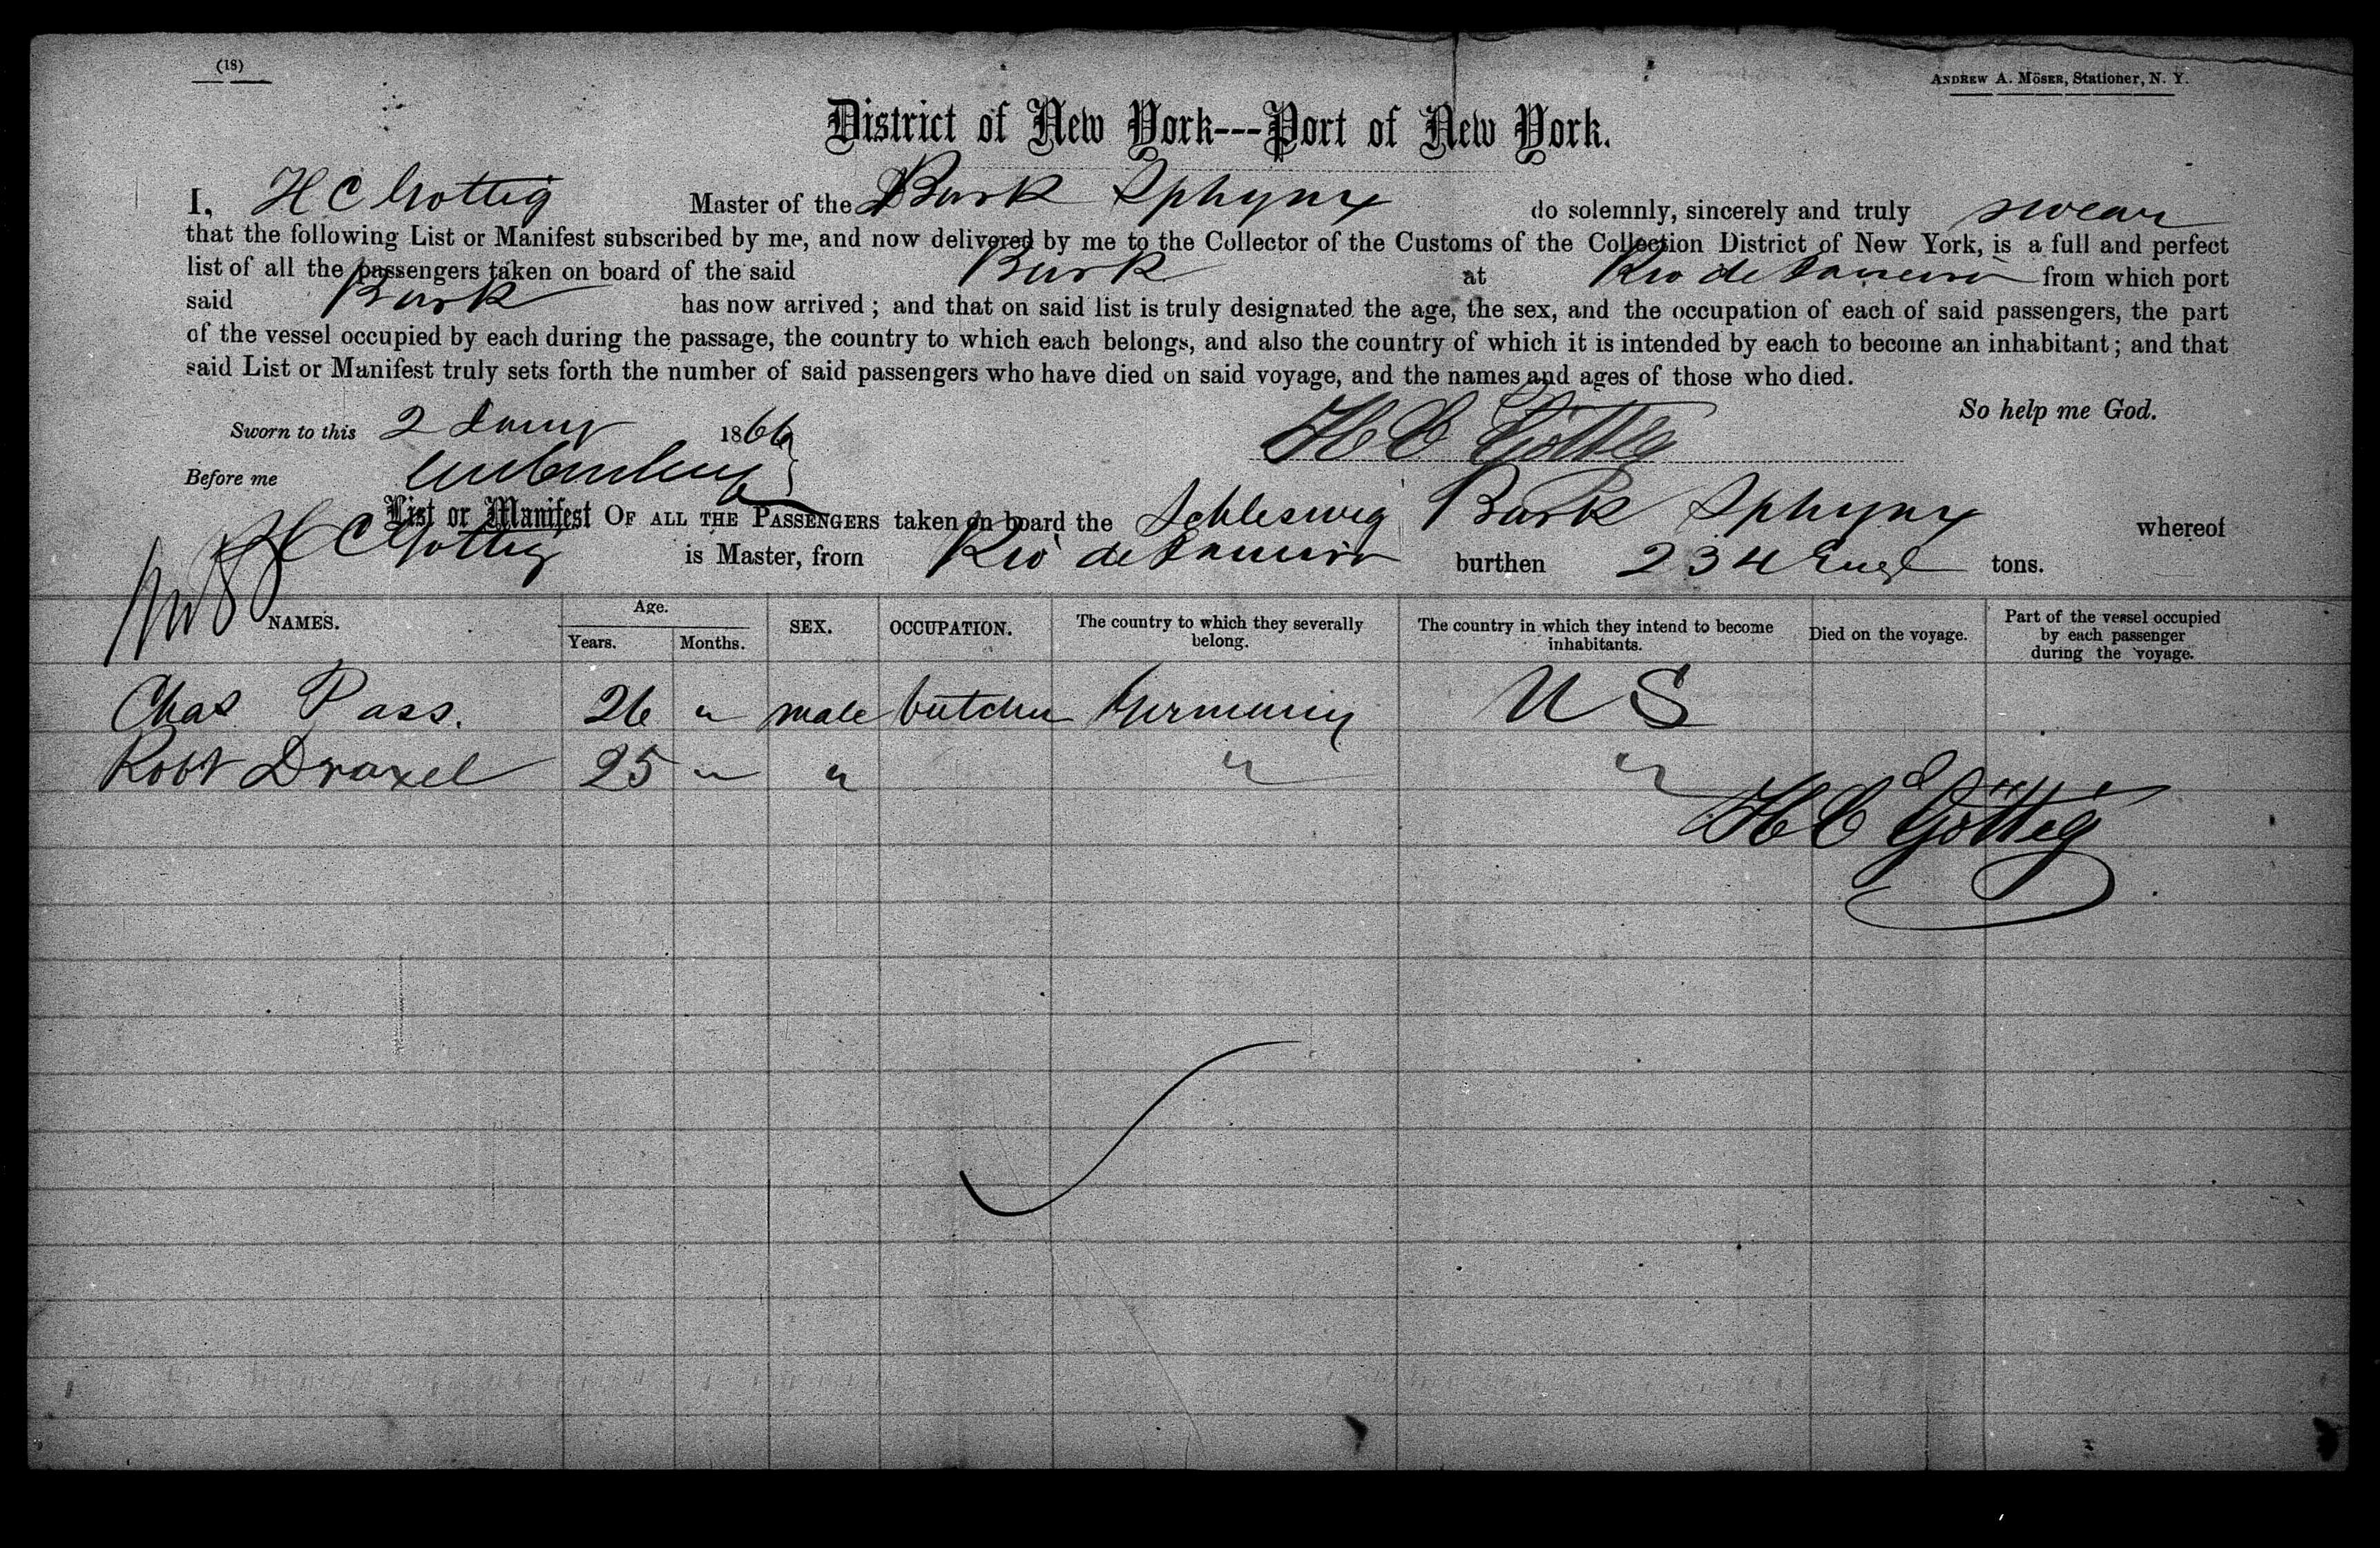 (18)
ANDREW A. MÖSER, Stationer, N. Y.
District of New York---Port of New York.
I, H C Gottig Master of the Bark Sphynx do solemnly, sincerely and truly swear
that the following List or Manifest subscribed by me, and now delivered by me to the Collector of the Customs of the Collection District of New York, is a full and perfect
list of all the passengers taken on board of the said Bark at Rio de Janeiro from which port
said Bark has now arrived; and that on said list is truly designated the age, the sex, and the occupation of each of said passengers, the part
of the vessel occupied by each during the passage, the country to which each belongs, and also the country of which it is intended by each to become an inhabitant; and that
said List or Manifest truly sets forth the number of said passengers who have died on said voyage, and the names and ages of those who died.
So help me God.
Sworn to this 2 Jany 1866 H C Göttig
Before me
List or Manifest OF ALL THE PASSENGERS taken on board the Schleswig Bark Sphynx whereof
H C Gottig is Master, from Rio de Janeiro burthen 234 Engl tons.
NAMES. Age. Years. Months. SEX. OCCUPATION. The country to which they severally belong. The country in which they intend to become inhabitants. Died on the voyage. Part of the vessel occupied by each passenger during the voyage.
Chas Pass. 26 " male butcher Germany U S
Robt Draxel 25 " " " "
H C Göttig